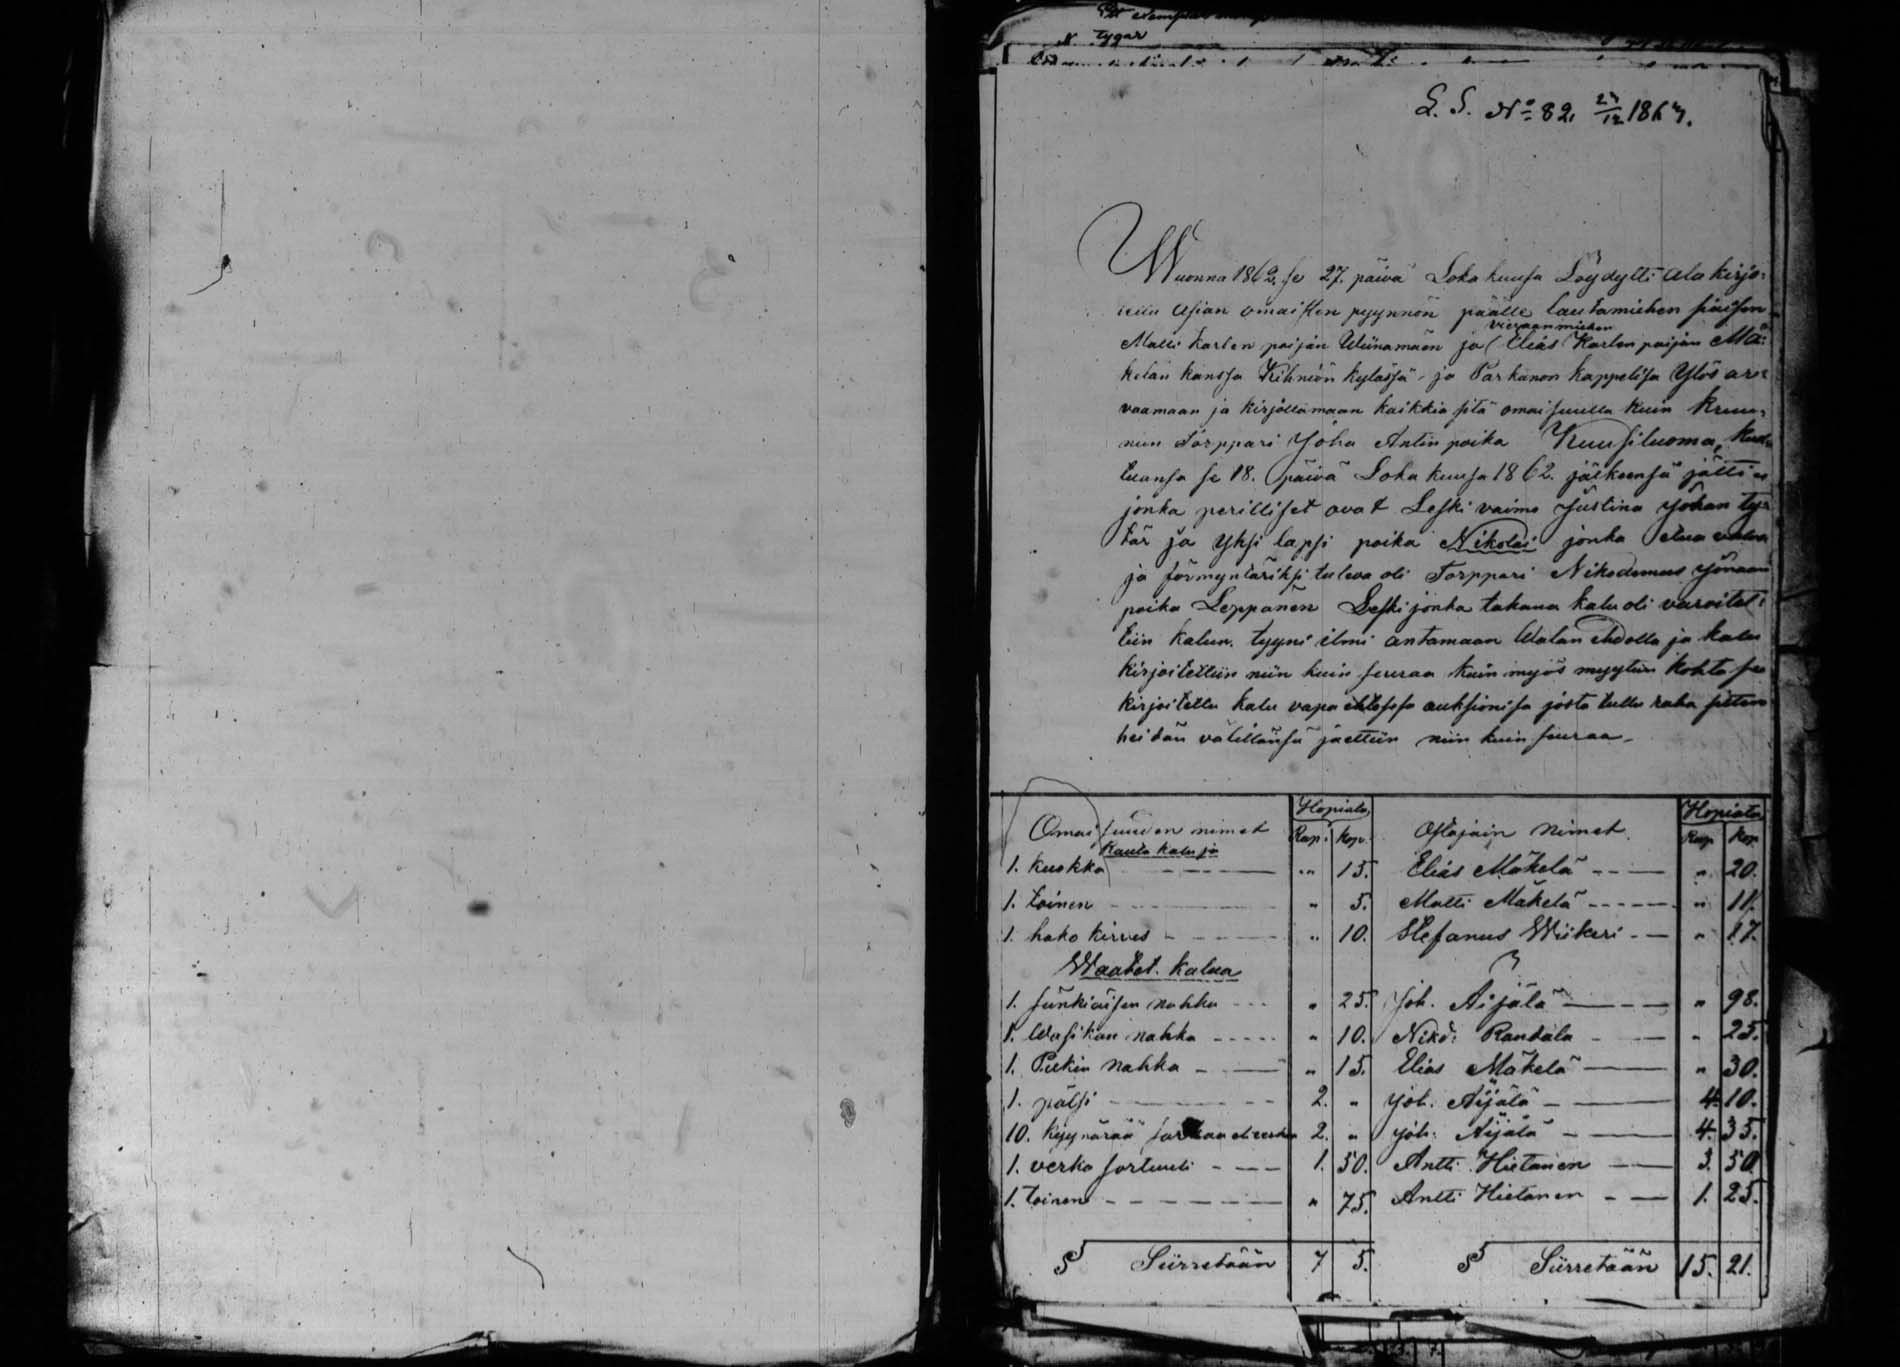 L. S. No 82. 27/12 1867.
Wuonna 1862. se 27. päivä Lokakuusa Löydytti ala kirjo-
asian omaisten pyynnön päälle lautamiehen
vieraanmiehen
Matti Karlen poijan Wiinamäen ja Elias Karlen poijan Mä-
kelän kanssa Kihniön kylässä ja Parkanon kappelisa Ylös ar-
vaamaan ja kirjottamaan kaikkia sitä omaisuutta kuin kruu-
nun Torppari Joha Antin poika Kuusiluoma, kuol-
tuansa se 18. päivä Loka kuusa 1862. jälkeensä jätti
jonka perilliset ovat Leski vaimo Justina Johan ty-
tär ja Yksi lapsi poika Nikolai jonka
ja förmyntäriksi tuleva oli Torppari Nikodemus
poika Leppänen Leski jonka takana kalu oli varoitet-
tiin kalun tyyni ilmi antamaan Walan ehdolla ja kalu
kirjoitettiin niin kuin seuraa kuin myös myytiin kohta se
kirjoitettu kalu vapaehtosesa auksionisa josta tullu raha sitten
heidän välillänsä jaettiin niin kuin seuraa
Omaisuuden nimet Hopiata Rup. Kop. Ostajain nimet. Hopiata Rup. Kop.
Rauta kaluja
1. kuokka " 15. Elias Mäkelä " 20.
1. toinen " 5. Matti Mäkelä " 11.
1. hako kirves " 10. Stefanus Wiikeri " 17.
Waatet. kalua
1. nahka " 25. Joh. Äijälä " 98.
1. Wasikan nahka " 10. Nikd: Randala " 25.
1. Pukin nahka " 15. Elias Mäkelä " 30.
1. pälsi 2. " Joh. Äijälä 4. 10.
10. kyynärää sarkaa 2. " Joh. Äijälä 4. 35.
1. verka sortuuti 1. 50. Antti Hietanen 3. 50
1. toinen " 75. Antti Hietanen 1. 25.
S Siirretään 7 5. S Siirretään 15. 21.